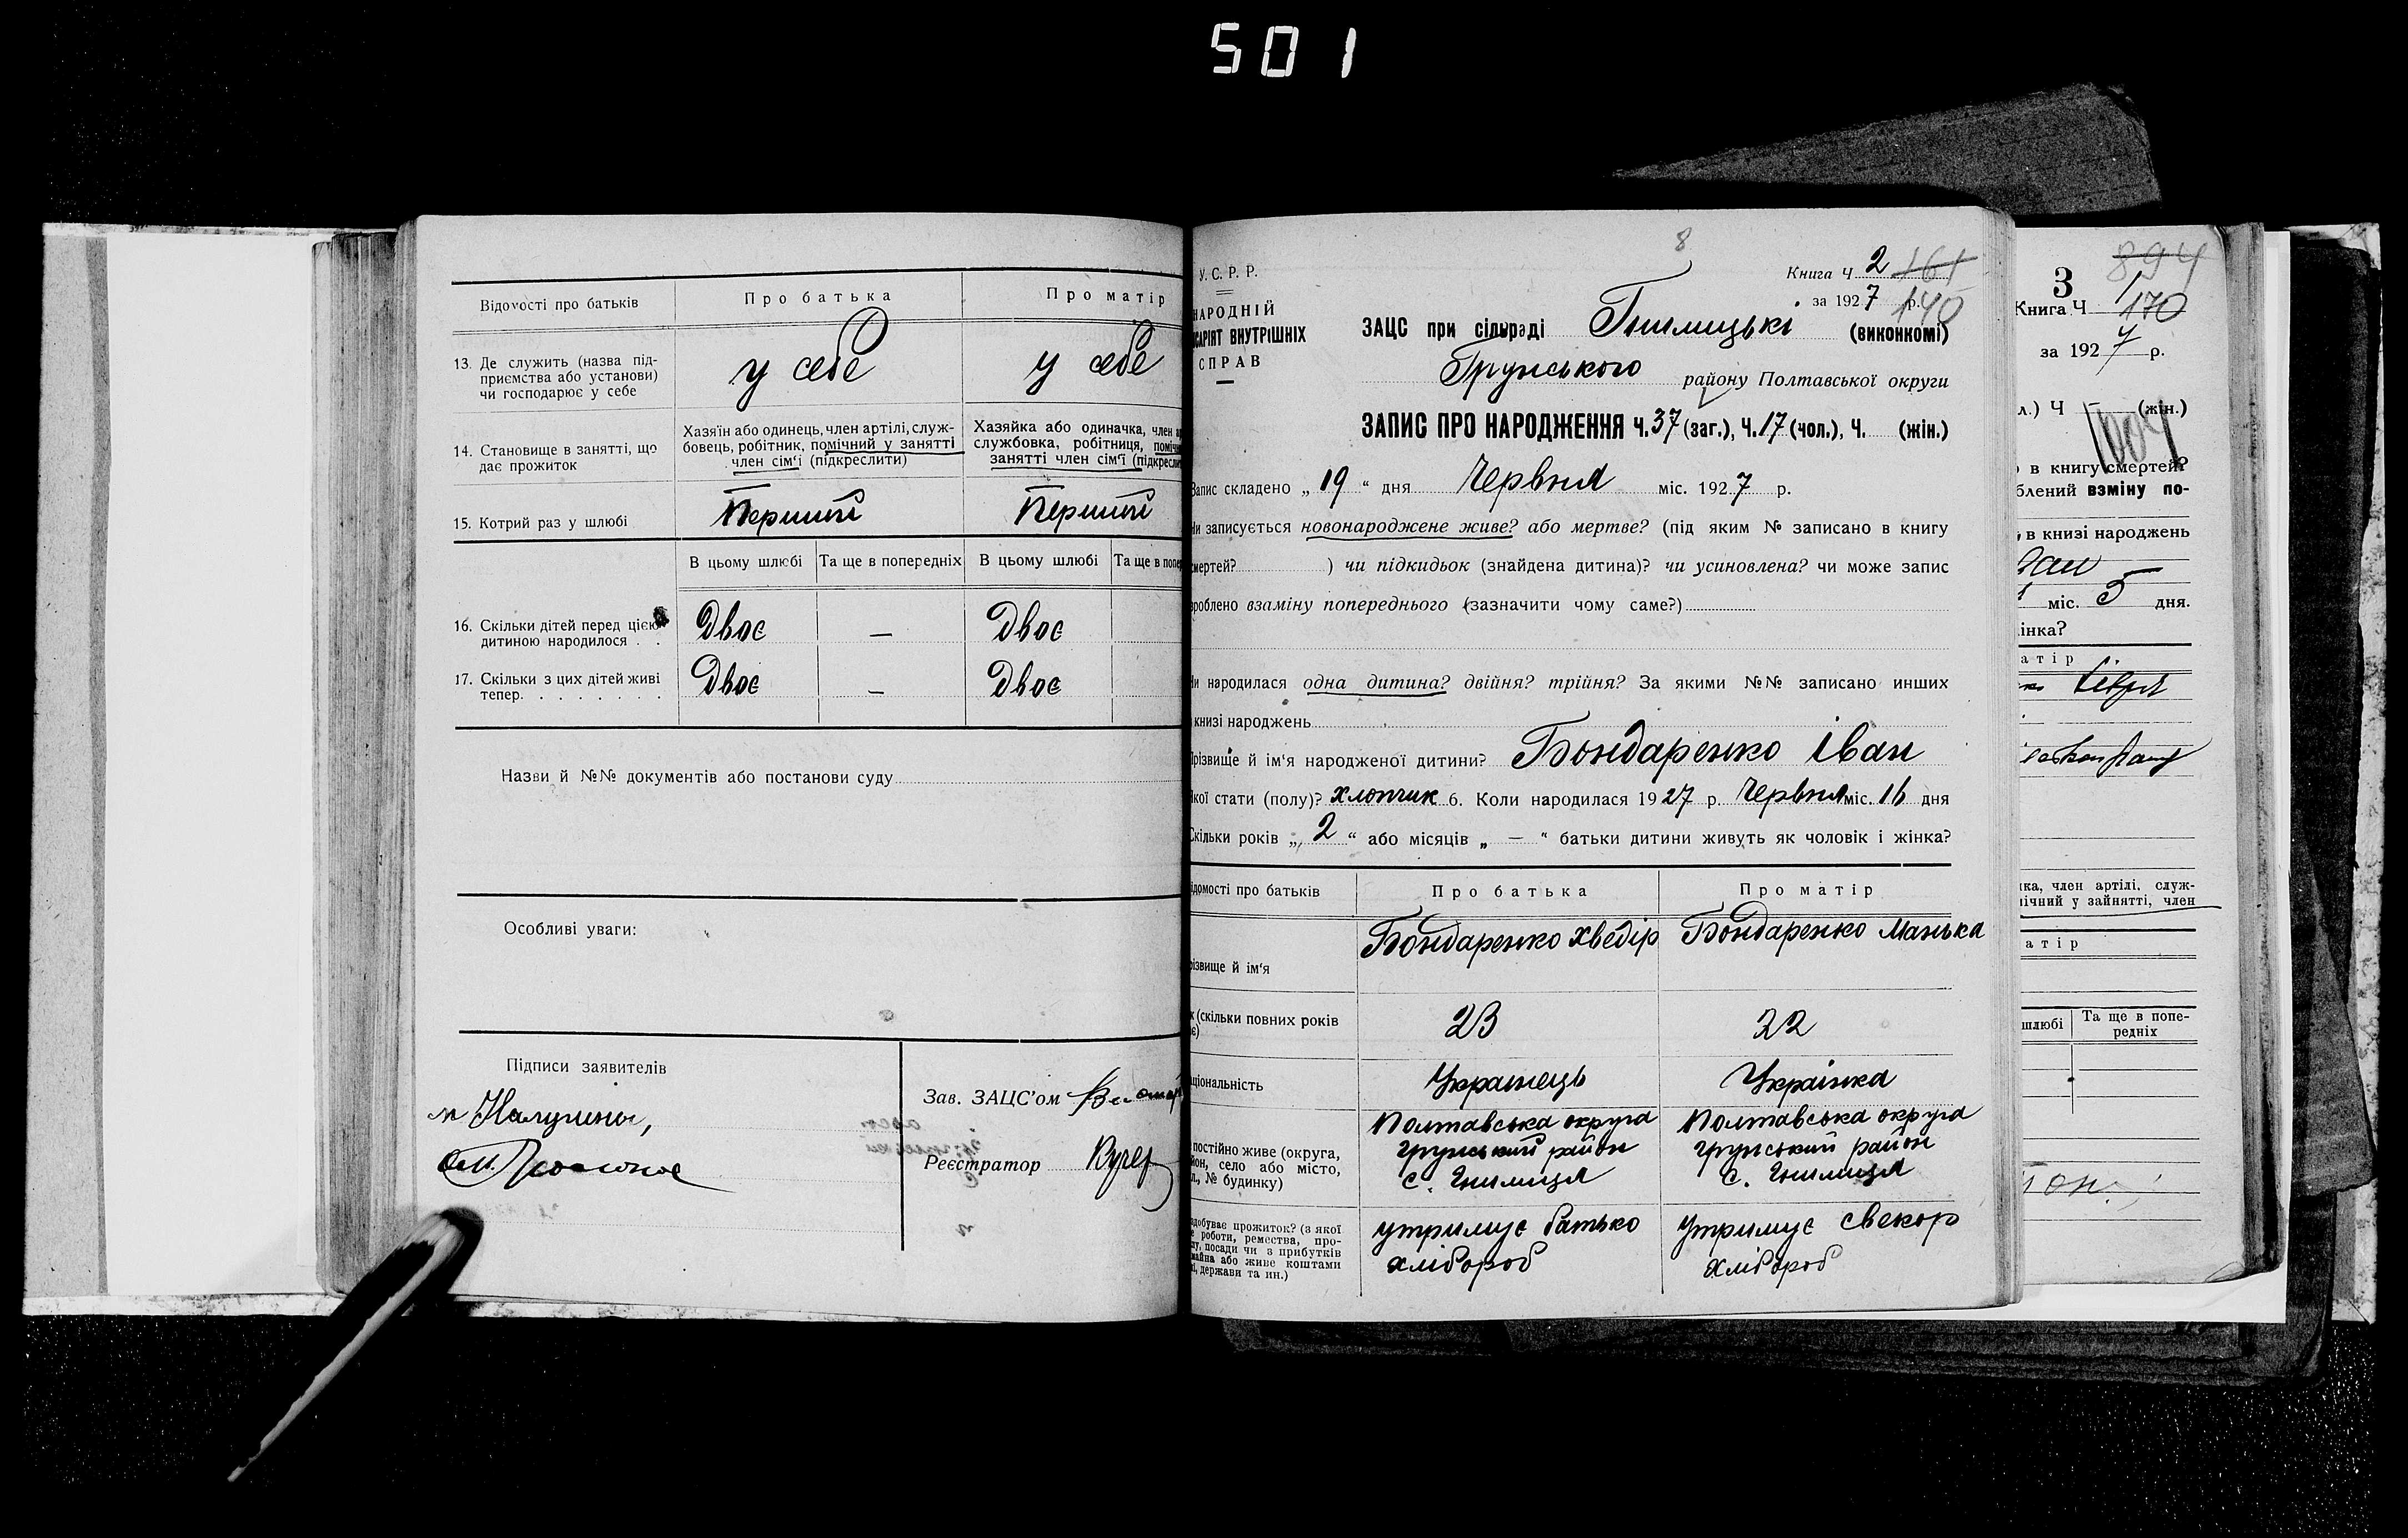 501
Відомості про батьків
Про батька
Про матір
13. Де служить (назва під-
приємства або установи)
чи господарює у себе
у себе
у себе
14. Становище в занятті, що
дає прожиток
Хазяїн або одинець, член артілі, служ-
бовець, робітник, помічний у занятті
член сім'ї (підкреслити)
Хазяйка або одиначка, член
службовка, робітниця,
занятті член сім'ї
15. Котрий раз у шлюбі
Перший
Перший
В цьому шлюбі
Та ще в попередніх
В цьому шлюбі
Та ще в
16. Скільки дітей перед цією
дитиною народилося . .
Двоє
—
Двоє
17. Скільки з цих дітей живі
тепер. . . . . . . .
Двоє
—
Двоє
Назви й №№ документів або постанови суду
Особливі уваги:
Підписи заявителів
Зав. ЗАЦС'ом
Реєстратор
8
У. С. Р. Р.
НАРОДНІЙ
ВНУТРІШНІХ
СПРАВ
Книга Ч 2 161
за 1927 р. 140
ЗАЦС при сільраді Гнилицькі (виконкомі)
Грунського району Полтавської округи
ЗАПИС ПРО НАРОДЖЕННЯ Ч. 37 (заг.), Ч. 17 (чол.), Ч. (жін.)
Запис складено „ 19 “ дня Червня міс. 1927 р.
записується новонароджене живе? або мертве? (під яким № записано в книгу
) чи підкидьок (знайдена дитина)? чи усиновлена? чи може запис
взаміну попереднього (зазначити чому саме?)
народилася одна дитина? двійня? трійня? За якими №№ записано инших
книзі народжень
й ім'я народженої дитини? Бондаренко Іван
стати (полу)? хлопчик 6. Коли народилася 1927 р. Червня міс. 16 дня
Скільки років „ 2 “ або місяців „ — “ батьки дитини живуть як чоловік і жінка?
про батьків
Про батька
Про матір
й ім'я
Бондаренко Хведір
Бондаренко Манька
(скільки повних років
23
22
Українець
Українка
постійно живе (округа,
село або місто,
№ будинку)
Полтавська округа
Грунський район
с. Гнилиця
Полтавська округа
Грунський район
с. Гнилиця
прожиток? (з якої
роботи, ремества, про-
посади чи з прибутків
або живе коштами
держави та ин.)
утримує батько
хлібороб
утримує свекор
хлібороб
3
894
Книга Ч 1
170
за 1927 р.
Ч — (жін.)
в книгу смертей?
взміну по-
в книзі народжень
міс. 5 дня.
член артілі, служ-
у зайнятті, член
шлюбі
Та ще в попе-
редніх